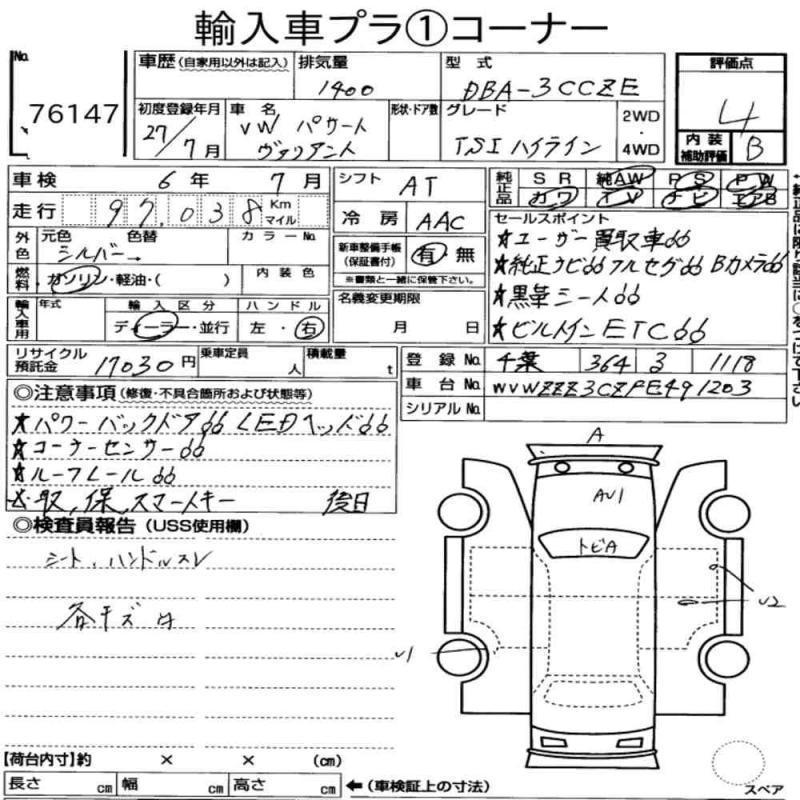 輸入車プラ①コーナー
No. 76147
車歴(自家用以外は記入) 排気量 1400 型式 DBA-3CCZE
評価点 4
内装補助評価 B
初度登録年月 27/7月 車名 VW パサート ヴァリアント 形状・ドア数 グレード TSIハイライン 2WD・4WD
車検 6年 7月
シフト AT
純正品 SR 純AW PS PW
カワ TV ナビ エアB
走行 97,038 Km マイル
冷房 AAC
外色 元色 シルバー 色替 → カラーNo.
新車整備手帳(保証書付) 有・無
※書類と一緒に保管下さい。
燃料 ガソリン・軽油・( ) 内装色
名義変更期限 月 日
輸入車用 年式 輸入区分 ディーラー・並行 ハンドル 左・右
セールスポイント
★ユーザー買取車
★純正ナビ フルセグ Bカメラ
★黒革シート
★ビルトインETC
リサイクル預託金 17030円 乗車定員 人 積載量 t
登録No. 千葉 364 ヨ 1118
車台No. WVWZZZ3CZFE491203
シリアルNo.
◎注意事項(修復・不具合箇所および状態等)
★パワーバックドア LEDヘッド
★コーナーセンサー
★ルーフレール
★取、保、スマートキー 後日
◎検査員報告(USS使用欄)
シート、ハンドルスレ
各キズ
A
AU1
トビA
U2
U1
【荷台内寸】約 × × (cm)
長さ cm 幅 cm 高さ cm ←(車検証上の寸法)
スペア